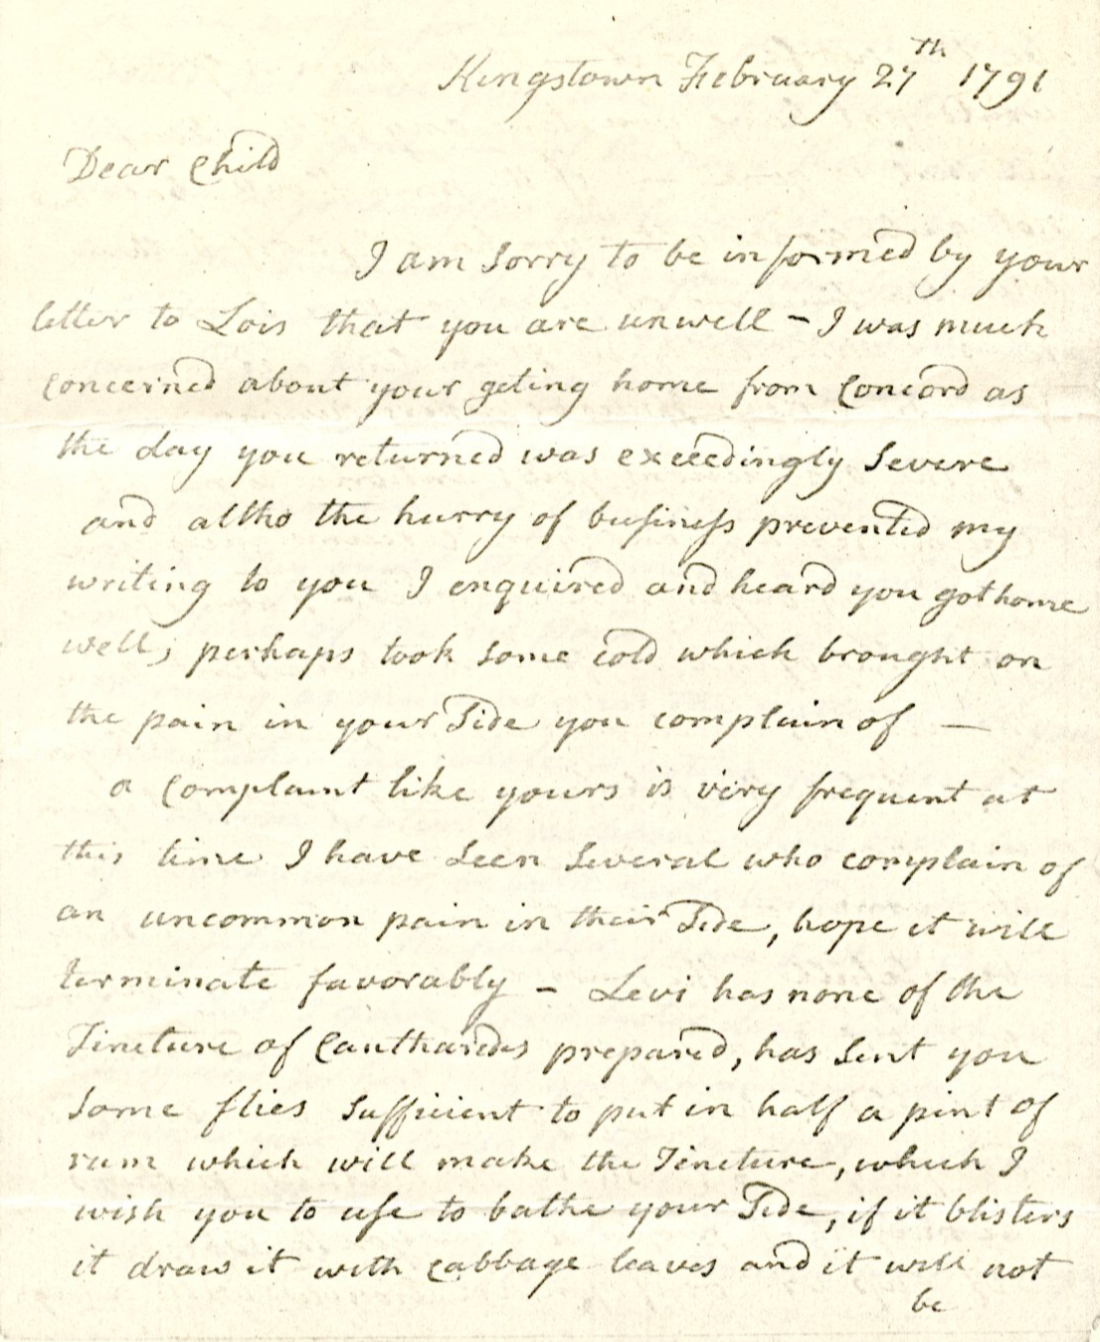 Kingstown February 27th 1791
Dear Child
I am sorry to be informed by your
letter to Lois that you are unwell - I was much
concerned about your geting home from Concord as
the day you returned was exceedingly severe
and altho the hurry of business prevented my
writing to you I enquired and heard you got home
well; perhaps took some cold which brought on
the pain in your Side you complain of —
a complaint like yours is very frequent at
this time I have seen several who complain of
an uncommon pain in their Side, hope it will
terminate favorably - Levi has none of the
Tincture of Cantharides prepared, has sent you
some flies sufficient to put in half a pint of
rum which will make the Tincture, which I
wish you to use to bathe your Side, if it blisters
it draw it with cabbage leaves and it will not
be